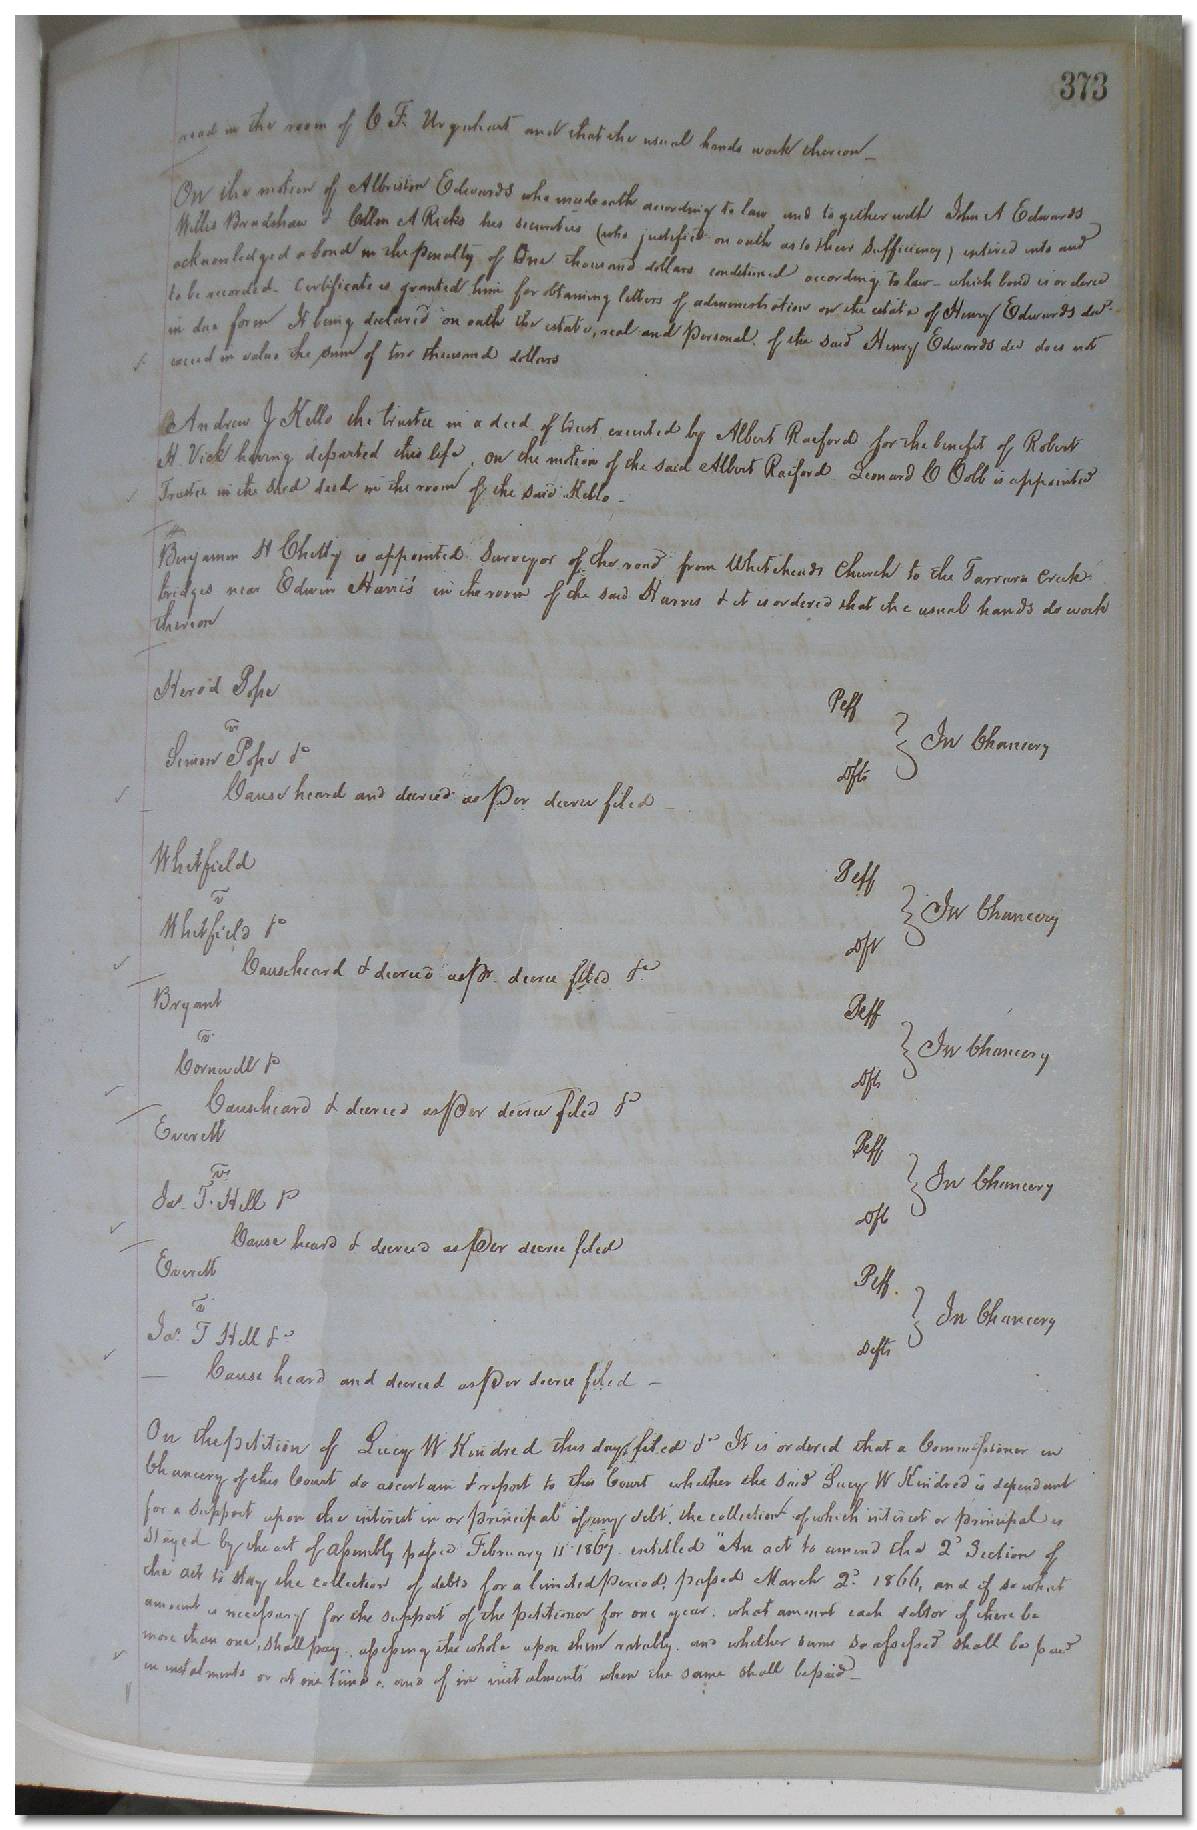 373
road in the room of C F. Urquhart and that the usual hands work thereon_
On the motion of Albriston Edwards who made oath according to law and together with John A Edwards
Willis Bradshaw & A Ricks his securities (who justified on oath as to their sufficiency) entered into and
acknowledged a bond in the penalty of One thousand dollars conditioned according to law which bond is ordered
to be recorded. Certificate is granted him for obtaining letters of administration on the estate of Henry Edwards decd.
in due form It being declared on oath the estate, real and Personal, of the said Henry Edwards decd does not
exceed in value the sum of two thousand dollars
Andrew J Kello the trustee in a deed of trust executed by Albert Raiford for the benefit of Robert
H Vick having departed this life, on the motion of the said Albert Raiford Leonard C Cobb is appointed
Trustee in the said deed in the room of the said Kello_
Benjamin H Chitty is appointed Surveyor of the road from Whiteheads Church to the Tarrara Creek
bridges near Edwin Harris' in the room of the said Harris & it is ordered that the usual hands do work
thereon
Herod Pope Peff
v
Simon Pope &c Dfts } In Chancery
Cause heard and decreed as per decree filed_
Whitfield Peff
v
Whitfield &c Dft } In Chancery
Cause heard & decreed as pr. decree filed &c
Bryant Peff
v
Cornwell &c Dfts } In Chancery
Cause heard & decreed as per decree filed &c
Everett Peff
vs
Jas. T. Hill &c Dft } In Chancery
Cause heard & decreed as per decree filed
Everett Peff.
v
Jas. T Hill &c Defts } In Chancery
Cause heard and decreed as per decree filed_
On the petition of Lucy W Kindred this day filed &c It is ordered that a Commissioner in
Chancery of this Court do ascertain & report to this Court whether the said Lucy W Kindred is dependant
for a support upon the interest in or principal of any debt, the collection of which interest or principal is
stayed by the act of assembly passed February 11 1867 entitled "An act to amend the 2d Section of
the act to stay the collection of debts for a limited period, passed March 2d. 1866, and if so what
amount is necessary for the support of the petitioner for one year. what amount each debtor if there be
more than one, shall pay, assessing the whole upon them ratably. and whether same so assessed shall be paid
in instalments or at one time, and if in instalments when the same shall be paid_